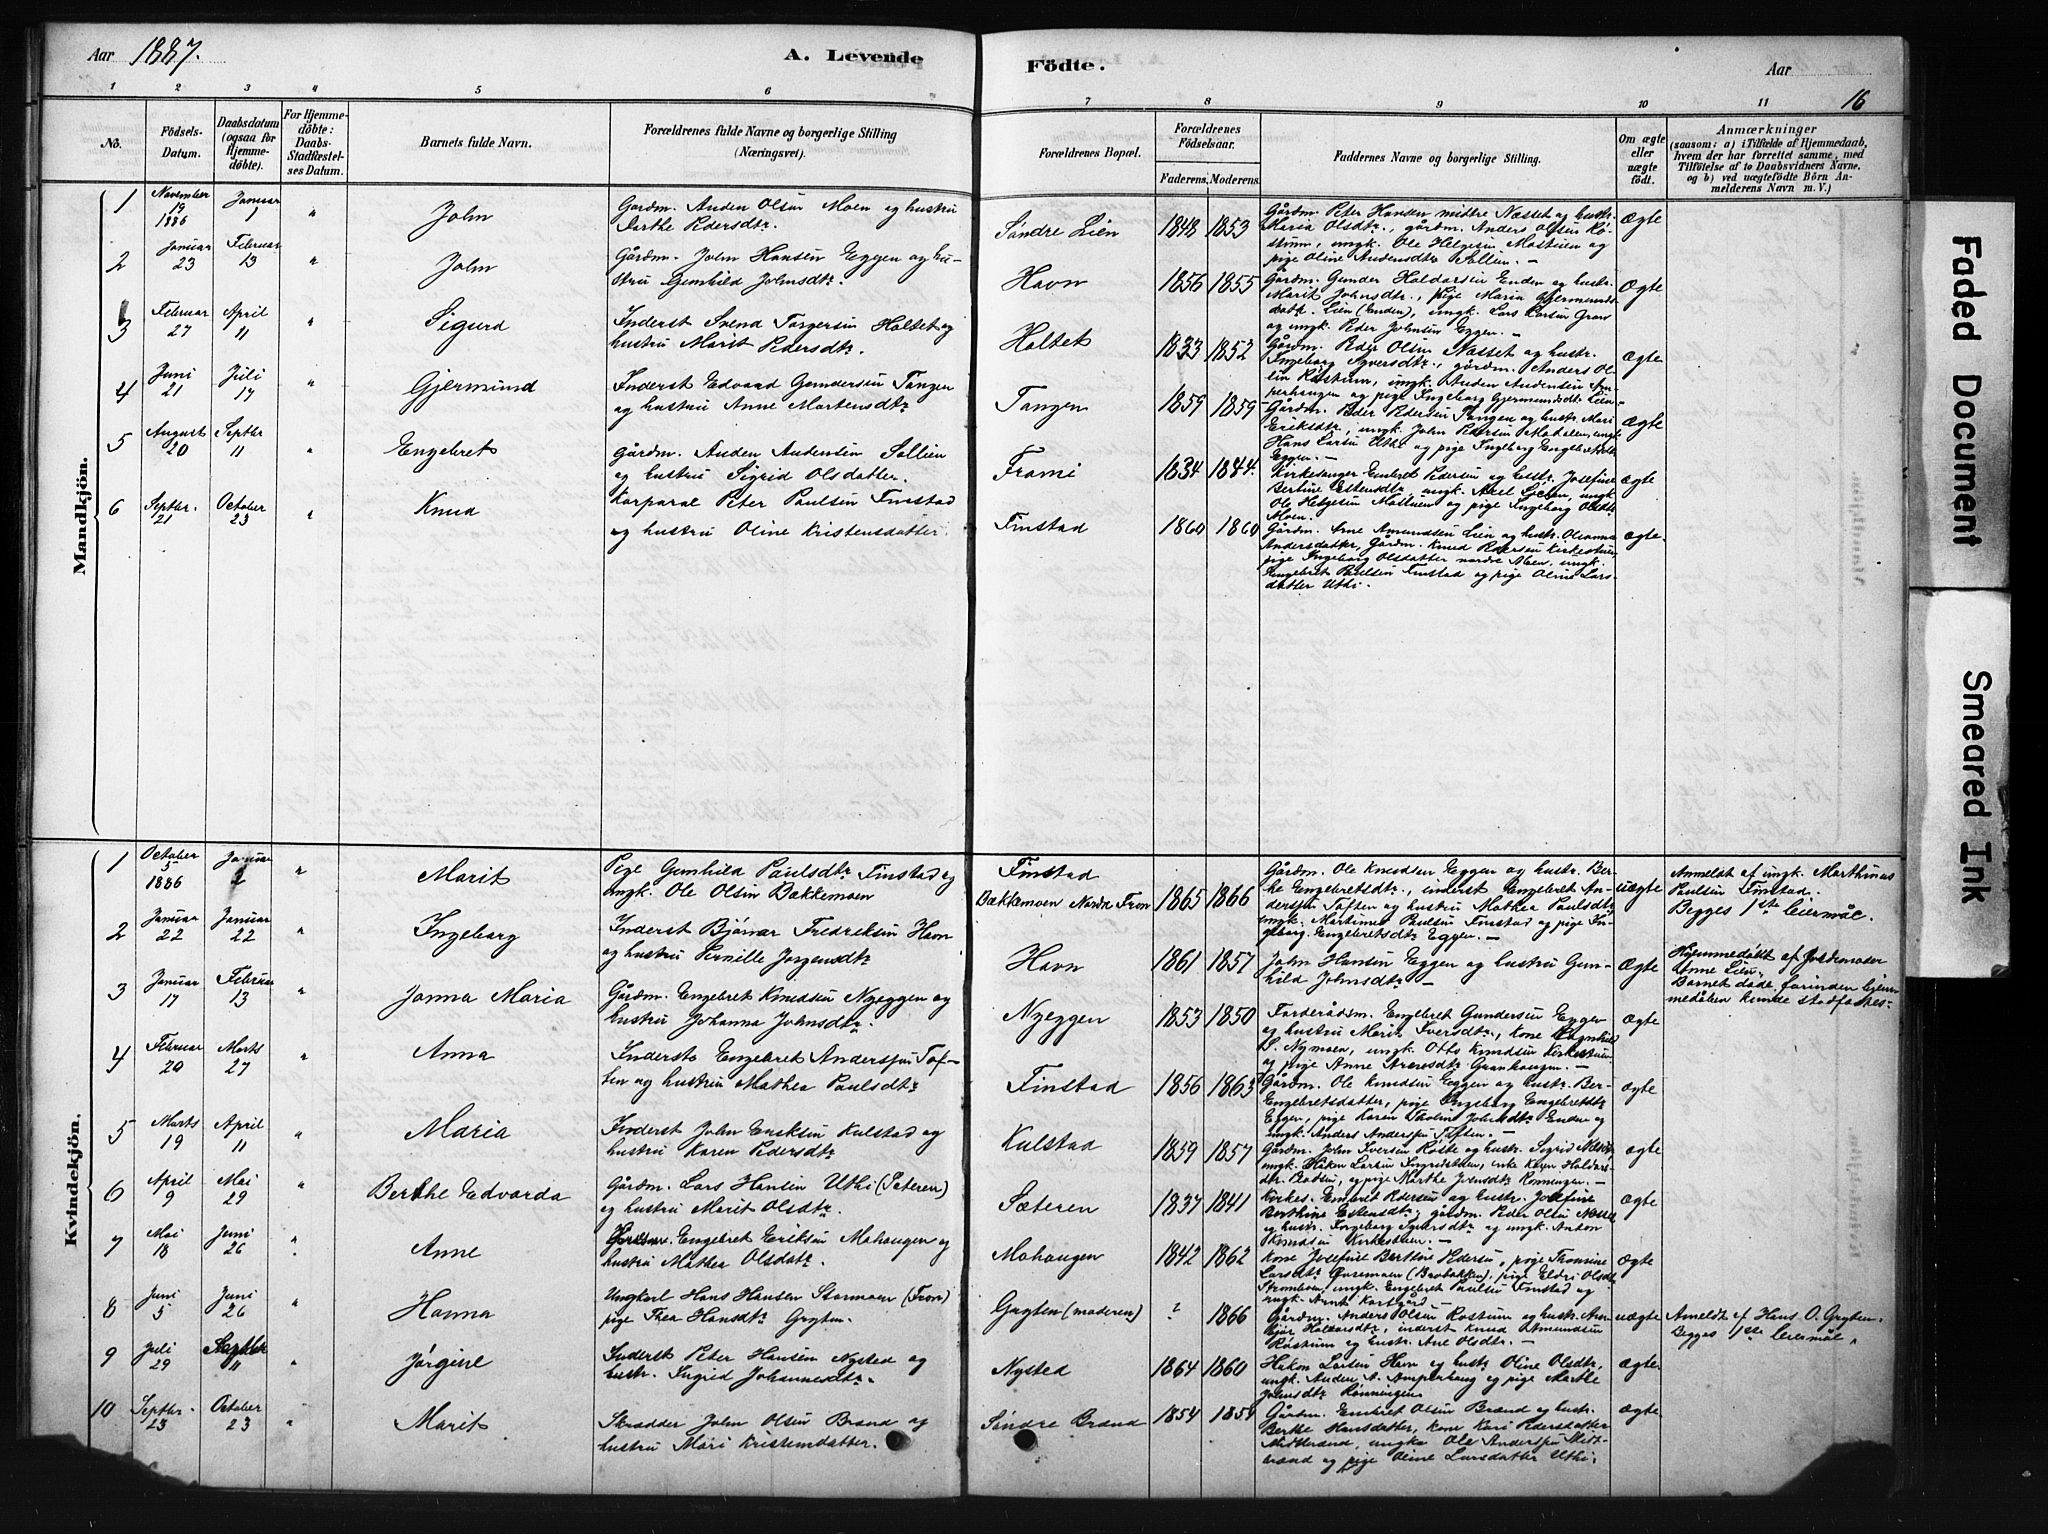 Aar 1887.
A. Levende
Födte.
Aar
16
1 2 3 4 5 6 7 8 9 10 11
No.
Födsels-
Datum.
Daabsdatum
(ogsaa for
Hjemme-
döbte).
For Hjemme-
döbte:
Daabs-
Stadfæstel-
ses Datum.
Barnets fulde Navn.
Forældrenes fulde Navne og borgerlige Stilling
(Næringsvei).
Forældrenes Bopæl.
Forældrenes
Födselsaar.
Faderens. Moderens.
Faddernes Navne og borgerlige Stilling.
Om ægte
eller
uægte
födt.
Anmærkninger
(saasom: a) i Tilfælde af Hjemmedaab,
hvem der har forrettet samme, med
Tilföielse af to Daabsvidners Navne.
og b) ved uægtefödte Börn An-
melderens Navn m. V.)
Mandkjön.
1 November 19 1886 Januar 1 " John
Gårdm. Anden Olsen Moen og hustru
Marthe Pedersdtr.
Søndre Lien 1848 1853
Gårdm. Peter Hansen midtre Næsset og hustr.
Maria Olsdtr., gårdm. Anders Olsen Rø-
stum, ungk. Ole Helgesen Mostuen og
pige Oline Andensdtr Sollien. –
Ægte
2 Januar 23 Februar 13 " John
Gårdm. John Hansen Eggen og hu-
stru Gunhild Johnsdtr.
Havn 1856 1855
Gårdm. Gunder Haldorsen Enden og hustr.
Marit Johnsdtr., Pige Maria Gjermunds-
datt. Lien (Enden), ungk. Lars Larsen
og ungk. Peder Johnsen Eggen. –
Ægte
3 Februar 27 April 11 " Sigurd
Inderst Svend Torgersen Holtet og
hustru Marit Pedersdtr.
Holtet 1833 1852
Gårdm. Peder Olsen Næsset og hustr.
Ingeborg Syversdtr., gårdm. Anders Ol-
sen Røstum, ungk. Anden Andensen Am-
perhaugen og pige Ingeborg Gjermundsdt. Lien
Ægte
4 Juni 21 Juli 17 " Gjermund
Inderst Edvard Gundersen Tangen
og hustru Anne Martensdtr.
Tangen 1859 1859
Gårdm. Peder Pedersen Tangen og hustr. Mari
Eriksdtr., ungk. John Pedersen
Hans Larsen Uthi og pige Ingeborg Engebretsdtr
Eggen. –
Ægte
5 August 20 Septbr 11 " Engebret
Gårdm. Anden Andensen Sollien
og hustru Sigrid Olsdatter.
Frami 1834 1844.
Kirkesanger Embret Pedersen og hustr. Josefine
Bertine Estensdtr. ungk. Axel Løken, ungk.
Ole Helgesen Mostuen og pige Ingeborg Olsdtr.
Moen.
Ægte
6 Septbr. 21 October 23 " Knud
Korporal Peter Paulsen Finstad
og hustru Oline Kristensdatter.
Finstad 1860 1860
Gårdm. Arne Amundsen Lien og hustr. Oleanna
Andersdatter, Gårdm. Knud Pedersen Kirkestuen,
pige Ingeborg Olsdatter nordre Moen, ungk.
Engebret Paulsen Finstad og pige Oline Lars-
datter Uthi.
Ægte.
Kvindekjön.
1 October 5 1886 Januar 2 " Marit
Pige Gunhild Paulsdtr. Finstad og
ungk. Ole Olsen Bækkemoen
Finstad
Bækkemoen Nordre Fron 1865 1866
Gårdm. Ole Knudsen Eggen og hustr. Ber-
the Engebretsdtr., inderst Engebret An-
dersen Toften og hustru Mathea Paulsdtr,
ungk. Martinus Paulsen Finstad og pige In-
geborg Engebretsdtr Eggen. –
uægte
Anmeldt af ungk. Marthinus
Paulsen Finstad.
Begges 1ste leiermål.
2 Januar 22 Januar 22 " Ingeborg
Inderst Bjørnar Fredriksen Havn
og hustru Pernille Jørgensdtr.
Havn 1861 1857
John Hansen Eggen og hustru Gun-
hild Johnsdtr. –
Ægte
Hjemmedøbt af Jordemoder
Anne Lien.
Barnet døde, forinden hjem-
medåben kunde stadfæstes-
3 Januar 17 Februar 13 " Janna Maria
Gårdm. Engebret Knudsen Nyeggen og
hustru Johanna Johnsdtr.
Nyeggen 1853 1850
Forderådsm. Engebret Gundersen Eggen
og hustru Marit Iversdtr., kone Ragnhild
S. Nymoen, ungk. Otto Knudsen Kirkestuen
og pige Anne Arnesdtr Granhaugen. –
ægte
4 Februar 20 Marts 27 " Anna
Inderste Engebret Andersen Tof-
ten og hustru Mathea Paulsdtr.
Finstad 1856 1863
Gårdm. Ole Knudsen Eggen og hustr. Ber-
Engebretsdatter, pige Ingeborg Engebretsdtr
Eggen, pige Karen Johnsdtr Enden og
ungk. Anders Andersen Toften. –
ægte
5 Marts 19 April 11 " Maria
Inderst John Eriksen Kulstad og
hustru Karen Pedersdtr.
Kulstad 1859 1857
Gårdm. John Iversen Røste og hustr. Sigrid
ungk. Håkon Larsen, enke Karen Haldors-
dtr., og pige Marthe Jensdtr Rønningen. –
ægte
6 April 9 Mai 29 " Berthe Edvarda
Gårdm. Lars Hansen Uthi (Sæteren)
og hustru Marit Olsdtr.
Sæteren 1837 1841
Kirkes. Embret Pedersen og hustr. Josefine
Berthine Estensdtr, gårdm. Peder Olsen Næsset
og hustr. Ingeborg Syversdtr. og ungk. Anton
Knudsen Kirkestuen. –
ægte
7 Mai 18 Juni 26 " Anne
Engebret Eriksen Mohaugen og
hustru Mathea Olsdatr.
Mohaugen 1842 1862
Kone Josefine Bertine Pedersen, pige Thomine
Larsdtr. Øvremoen (Brobakken), pige Eldri Olsdtr
Strømboen, ungk. Engebret Paulsen Finstad og
ungk. Arnt
ægte
8 Juni 5 Juni 26 " Hanna
Ungkarl Hans Hansen Stormoen (Fron)
pige Thea Hansdtr Gryten.
Gryten (moderen) ? 1866
Gårdm. Anders Olsen Røstum og hustr. Am-
bjør Haldorsdtr., inderst Knud Amundsen
Røstum og hustr. Ane Olsdtr.
uægte
Anmeldt af Hans O. Gryten.
Begges 1ste leiermål.
9 Juli 29 Septbr 11 " Jørgine
Inderst Peter Hansen Nysted og
hustr. Ingrid Johannesdtr.
Nysted 1864 1860
Håkon Larsen Havn og hustr. Oline Olsdtr,
ungk. Anden A. Amperhaug og pige Marthe
Johnsdtr. Rønningen.
ægte.
10 Septbr. 23 October 23 " Marit
Skrædder John Olsen Brænd og
hustru Mari Kristensdatter.
Søndre Brænd 1854 1854
Gårdm. Embret Olsen Brænd og hustr.
Berthe Hansdatter, kone Kari Pedersdatter
Midtbrænd, ungk. Ole Andersen Midt-
brænd og pige Oline Larsdatter Uthi.
ægte.
Faded Document
Smeared Ink